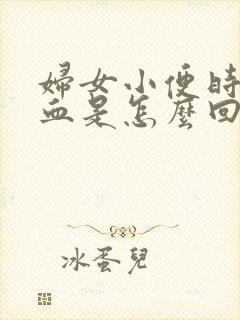 婦女小便時
血是怎麼回
冰蛋兒